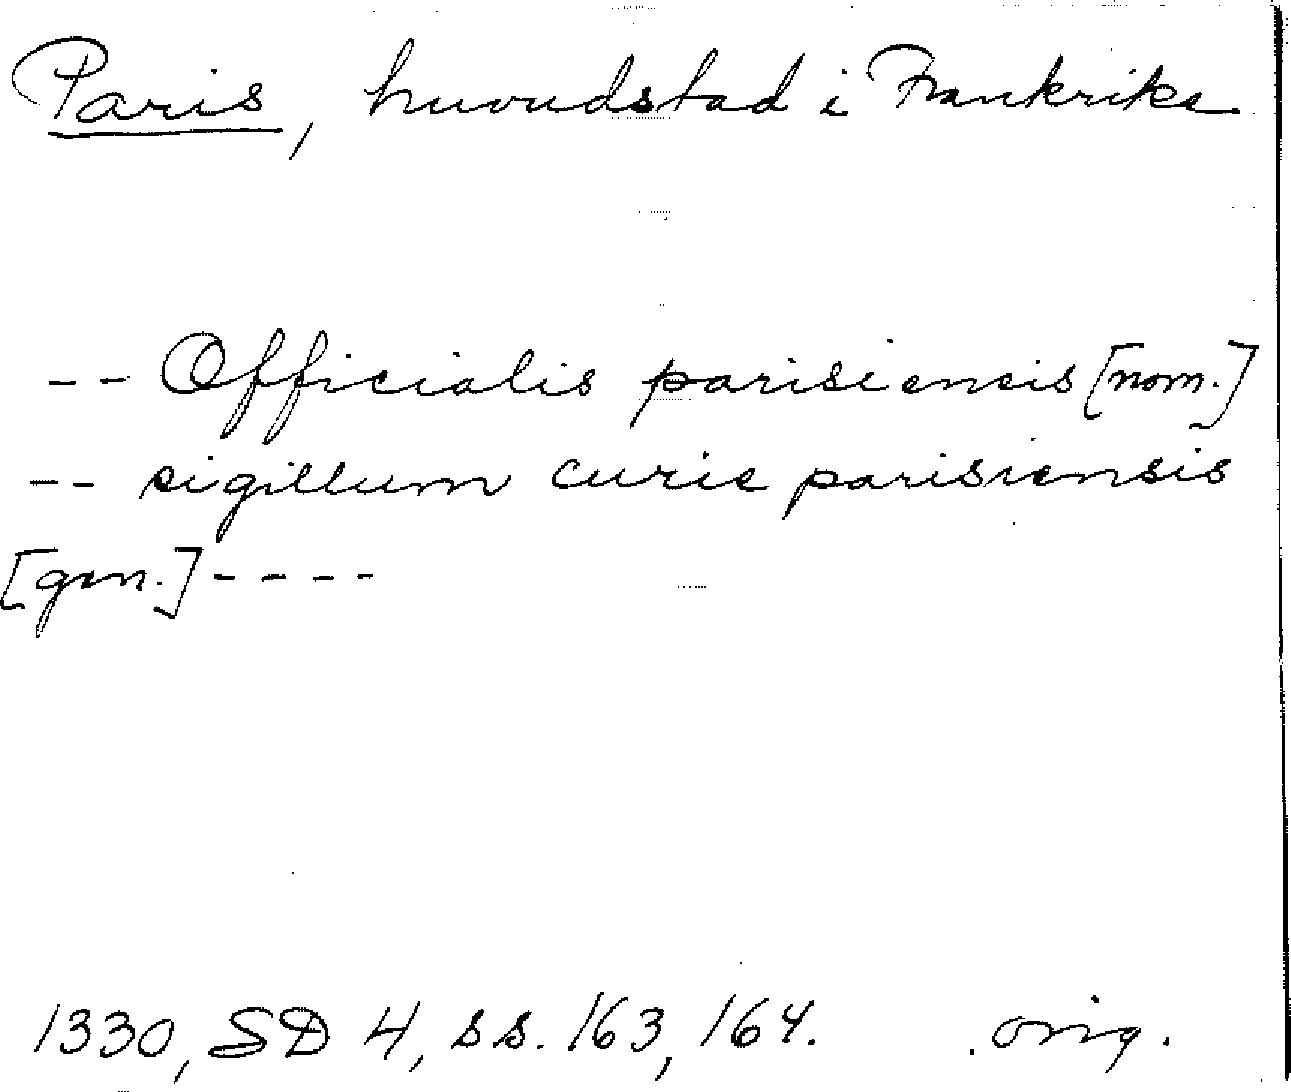 Paris, huvudstad i Frankrike
-- Officialis parisiensis [nom.]
-- sigillum curie parisiensis
[gen.] ----
1330, SD 4, ss. 163, 164. orig.